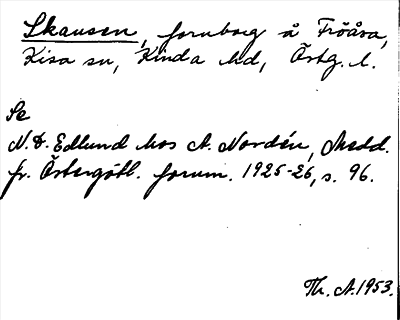 Skansen, fornborg å Fröåsa,
Kisa sn, Kinda hd, Östg. l.
Se
N. D. Edlund hos A. Nordén, Medd.
fr. Östergötl. fornm. 1925-26, s. 96.
Th. A. 1953.